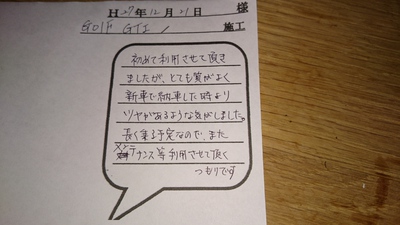 様
H27年12月21日
GOLF GTI 施工
初めて利用させて頂き
ましたが、とても質がよく
新車で納車した時より
ツヤがあるような気がしました。
長く乗る予定なので、また
メンテナンス等利用させて頂く
つもりです